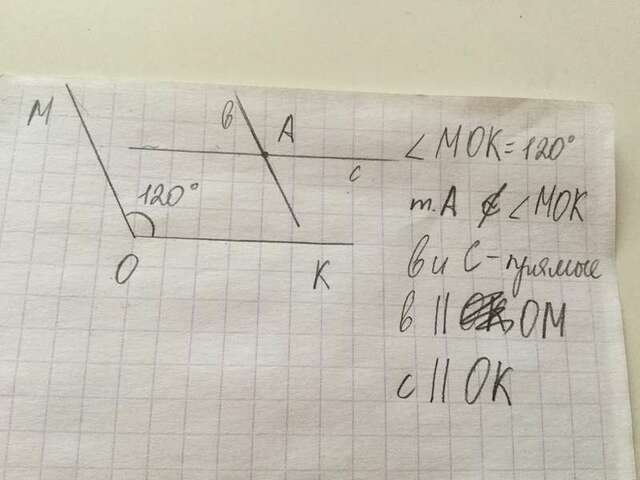 M
в
A
c
120°
O
K
∠ MOK = 120°
т. A ∉ ∠ MOK
в и C - прямые
в || OM
c || OK